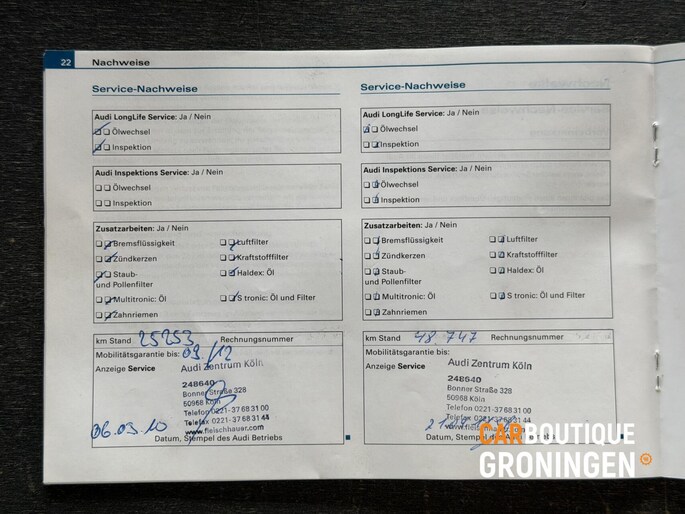 22 Nachweise
Service-Nachweise
Audi LongLife Service: Ja / Nein
Ölwechsel
Inspektion
Audi Inspektions Service: Ja / Nein
Ölwechsel
Inspektion
Zusatzarbeiten: Ja / Nein
Bremsflüssigkeit Luftfilter
Zündkerzen Kraftstofffilter
Staub- Haldex: Öl
und Pollenfilter
Multitronic: Öl S tronic: Öl und Filter
Zahnriemen
km Stand 25253 Rechnungsnummer
Mobilitätsgarantie bis: 03/12
Anzeige Service Audi Zentrum Köln
248640
Bonner Straße 328
50968 Köln
Telefon 0221-37 68 31 00
Telefax 0221-37 68 31 44
www.fleischhauer.com
06.03.10
Datum, Stempel des Audi Betriebs
Service-Nachweise
Audi LongLife Service: Ja / Nein
Ölwechsel
Inspektion
Audi Inspektions Service: Ja / Nein
Ölwechsel
Inspektion
Zusatzarbeiten: Ja / Nein
Bremsflüssigkeit Luftfilter
Zündkerzen Kraftstofffilter
Staub- Haldex: Öl
und Pollenfilter
Multitronic: Öl S tronic: Öl und Filter
Zahnriemen
km Stand 48.747 Rechnungsnummer
Mobilitätsgarantie bis:
Anzeige Service Audi Zentrum Köln
248640
Bonner Straße 328
50968 Köln
Telefon 0221-37 68 31 00
Telefax 0221-37 68 31 44
www.fleischhauer.com
Datum, Stempel des Audi Betriebs
CARBOUTIQUE
GRONINGEN